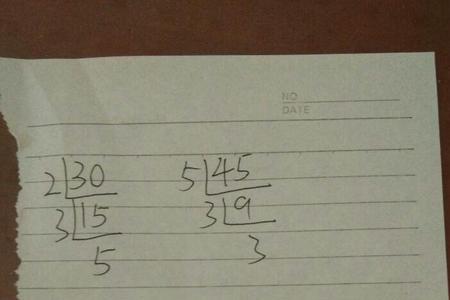 NO
DATE
2 30 5 45
3 15 3 9
5 3